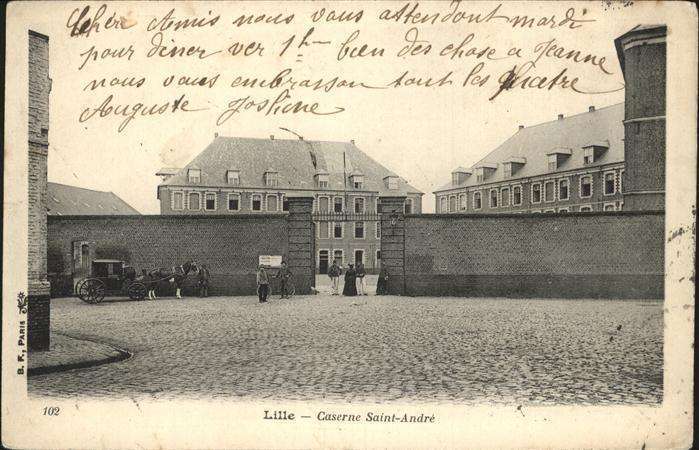 Chère Amis nous vous attendont mardi
pour diner ver 1h bien des chose a Jeanne
nous vous embrasson tout les quatre
Auguste Josline
B. F., PARIS
102
Lille — Caserne Saint-André